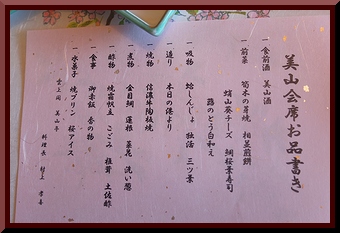 美山会席お品書き
一 食前酒 美山酒
一 前菜 筍木の芽焼 相並煎餅
蛸山葵チーズ 鯛桜葉寿司
蕗のとう白和え
一 吸物 蛤しんじょ 独活 三ツ葉
一 造り 本日の港より
一 焼物 信濃牛陶板焼
一 煮物 金目鯛 蓮根 菜花 洗い葱
一 酢物 焼霜帆立 こごみ 長芋 土佐酢
一 食事 御赤飯 香の物
一 水菓子 焼プリン 桜アイス
料理長 村上